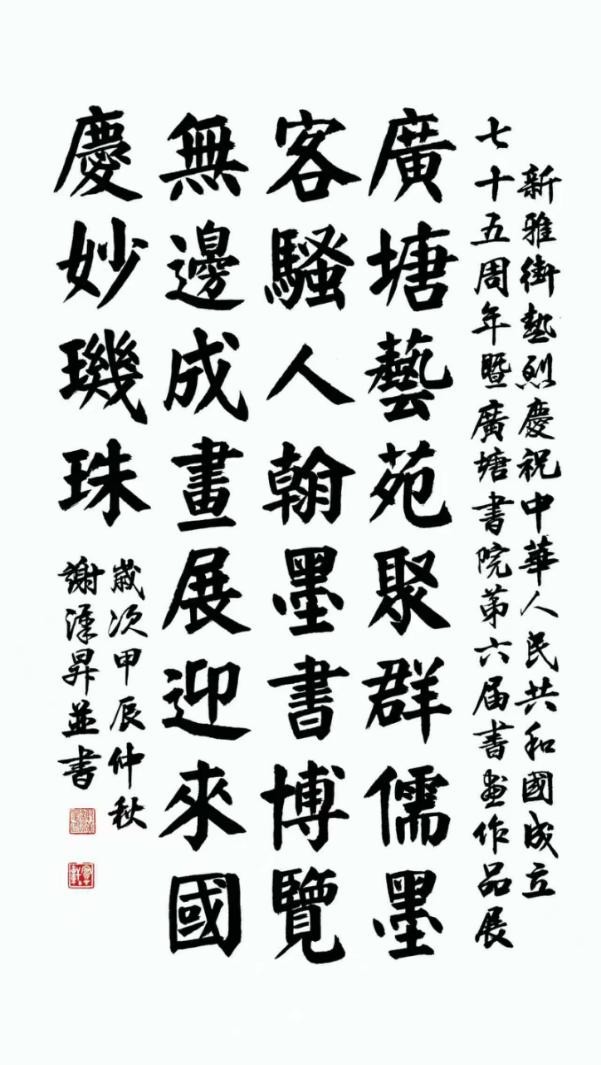 新雅街熱烈慶祝中華人民共和國成立
七十五周年暨廣塘書院第六届書畫作品展
廣塘藝苑聚群儒墨
客騷人翰墨書博覽
無邊成畫展迎來國
慶妙璣珠
歲次甲辰仲秋
謝澤昇並書